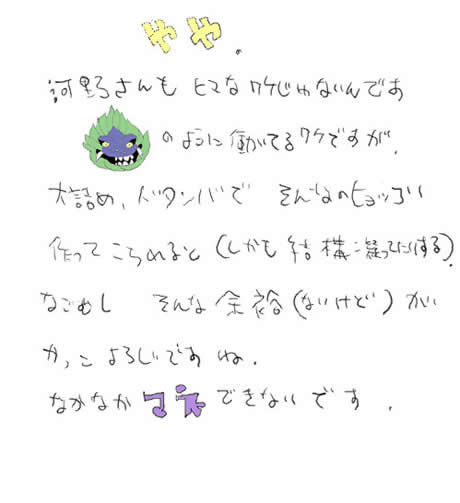 やや。
河野さんも ヒマなワケじゃないんですあ
のように働いてるワケですが、
大詰め、ドタンバで そんなのヒョッコリ
作ってこられると(しかも結構凝ってたりする)、
なごむし そんな余裕(ないけど)がい
かっこよろしいですね。
なかなかマネできないです。